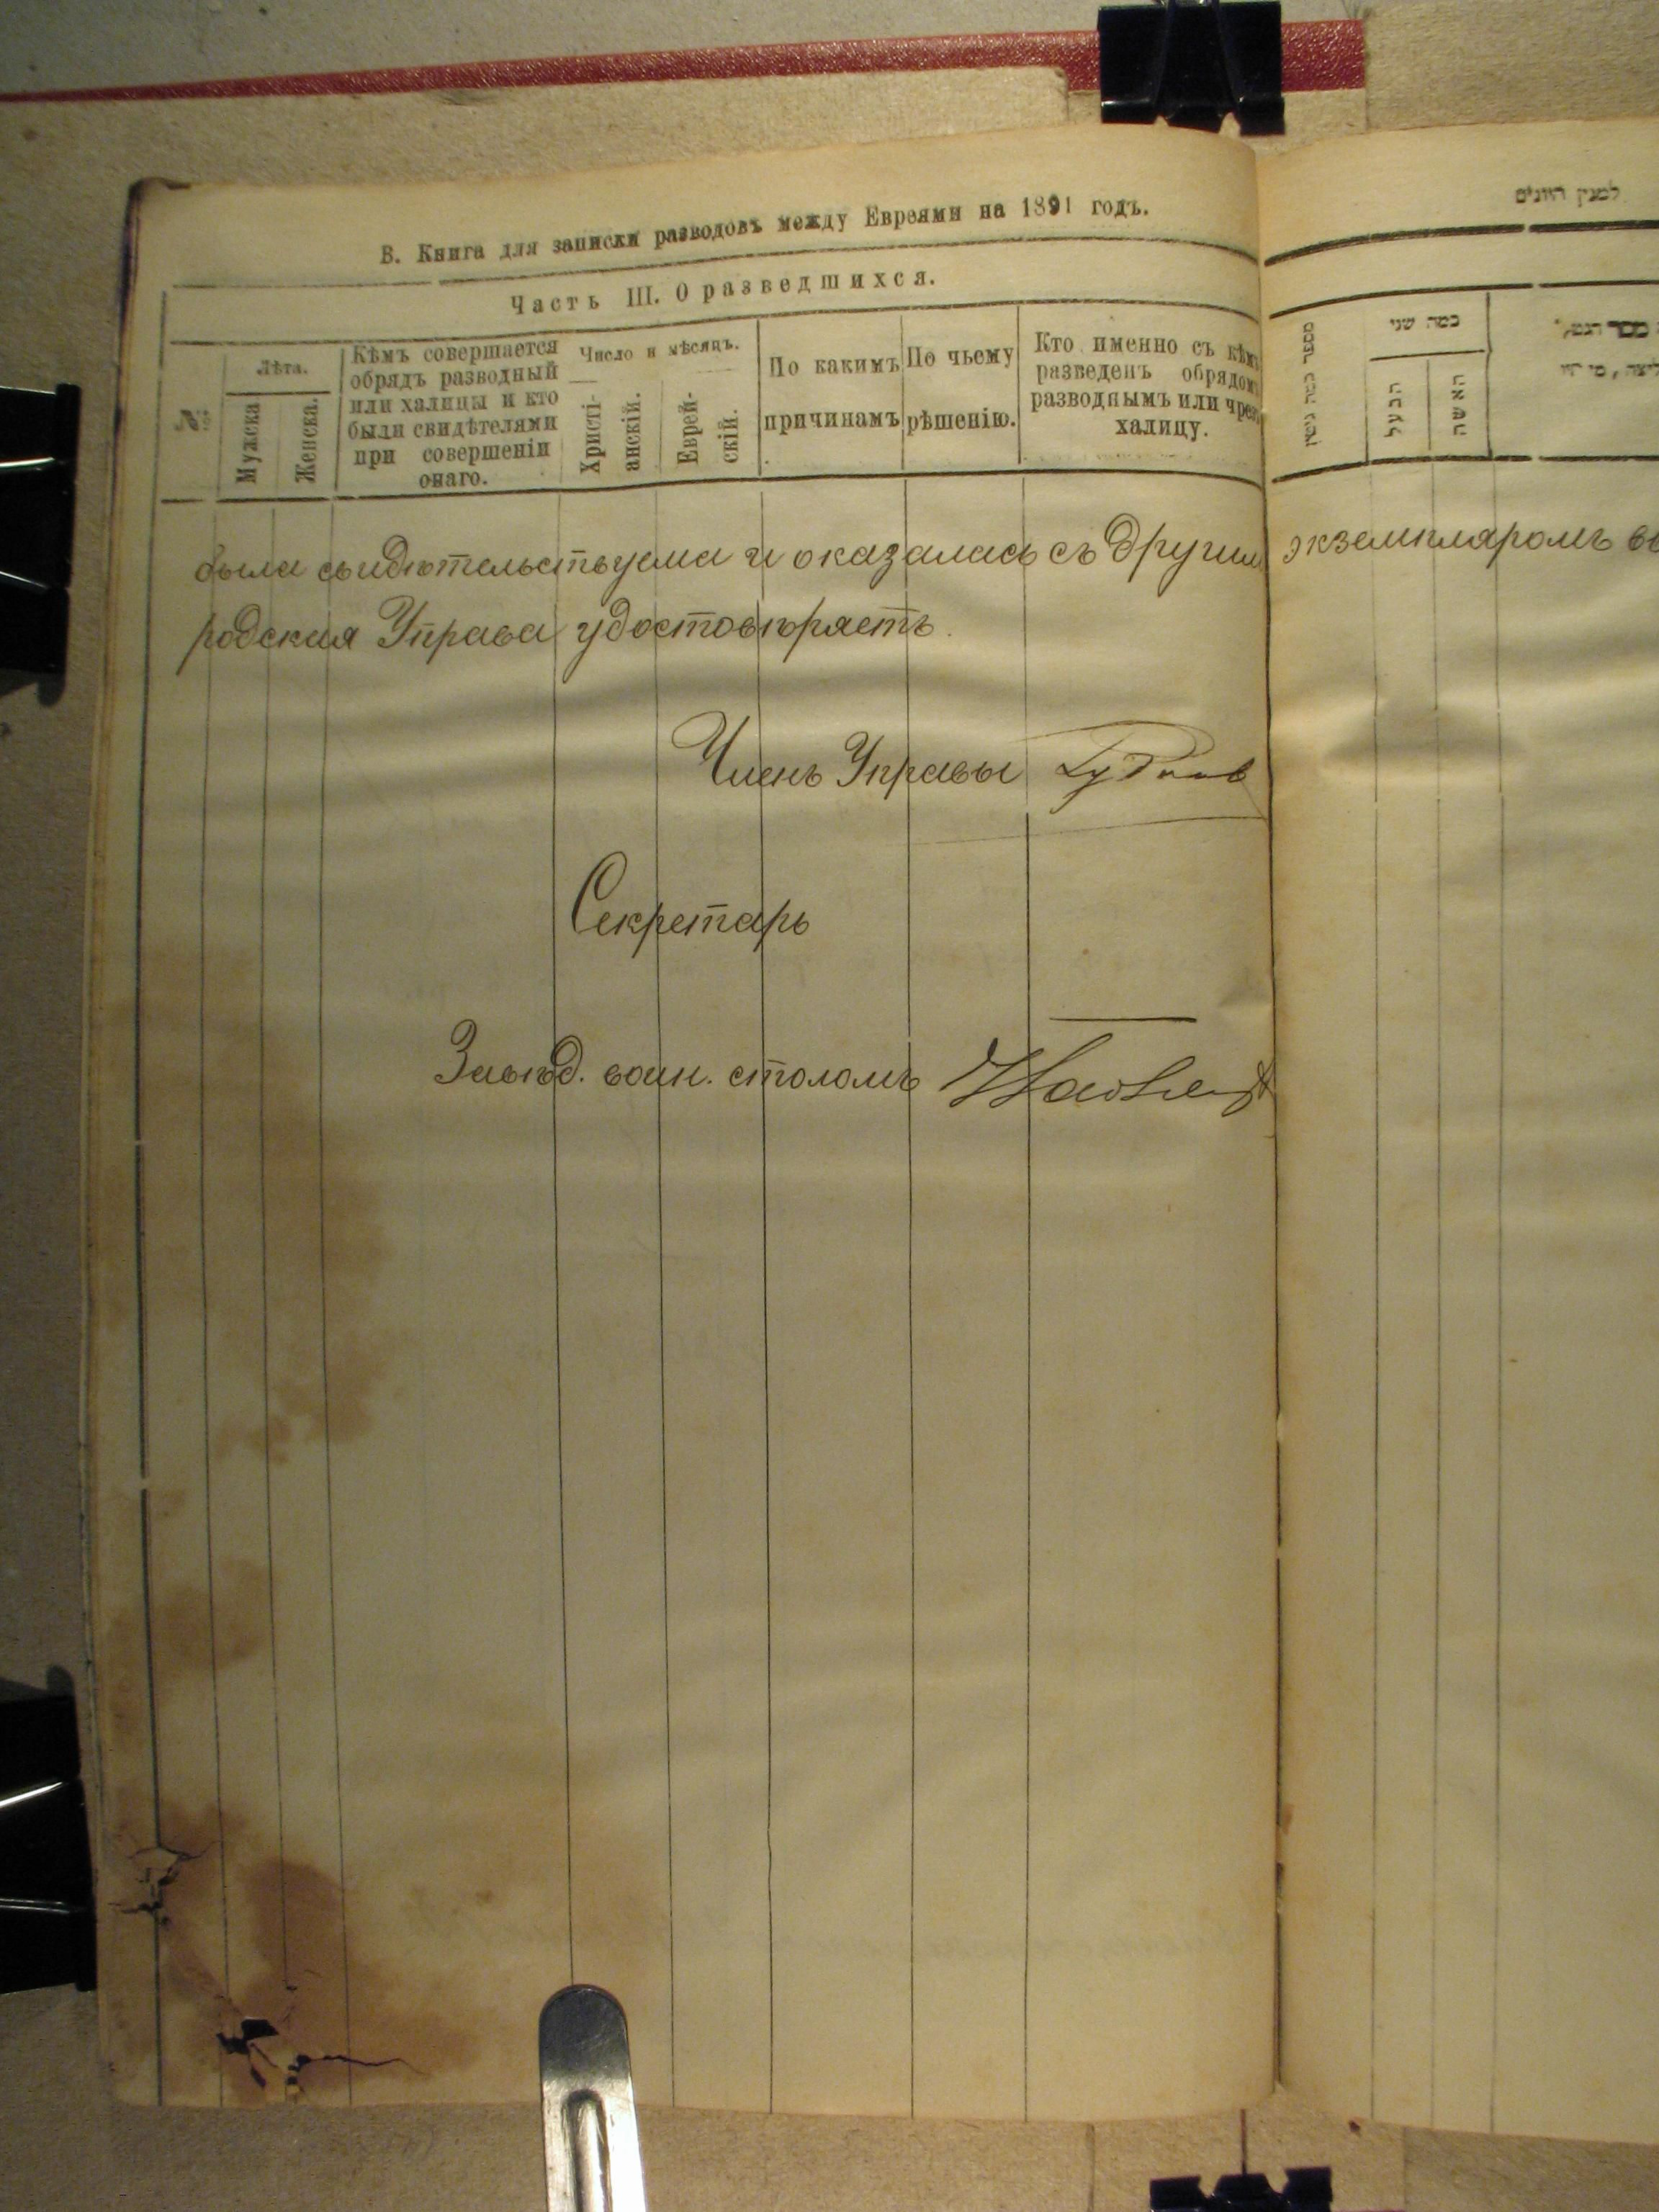 В. Книга для записки разводовъ между Евреями на 1891 годъ.
Часть III. О разведшихся.
№
Лѣта.
Мужска
Женска.
Кѣмъ совершается
обрядъ разводный
или халицы и кто
были свидѣтелями
при совершеніи
онаго.
Число и мѣсяцъ.
Христі-
анскій.
Еврей-
скій.
По какимъ
причинамъ
По чьему
рѣшенію.
Кто именно съ кѣмъ
разведенъ обрядомъ
разводнымъ или чрез
халицу.
была свидѣтельствуема и оказалась съ другим
родская Управа удостовѣряетъ.
Членъ Управы
Секретарь
Завѣд. воин. столомъ
כמה שני
הבעל
האשה
экземпляромъ